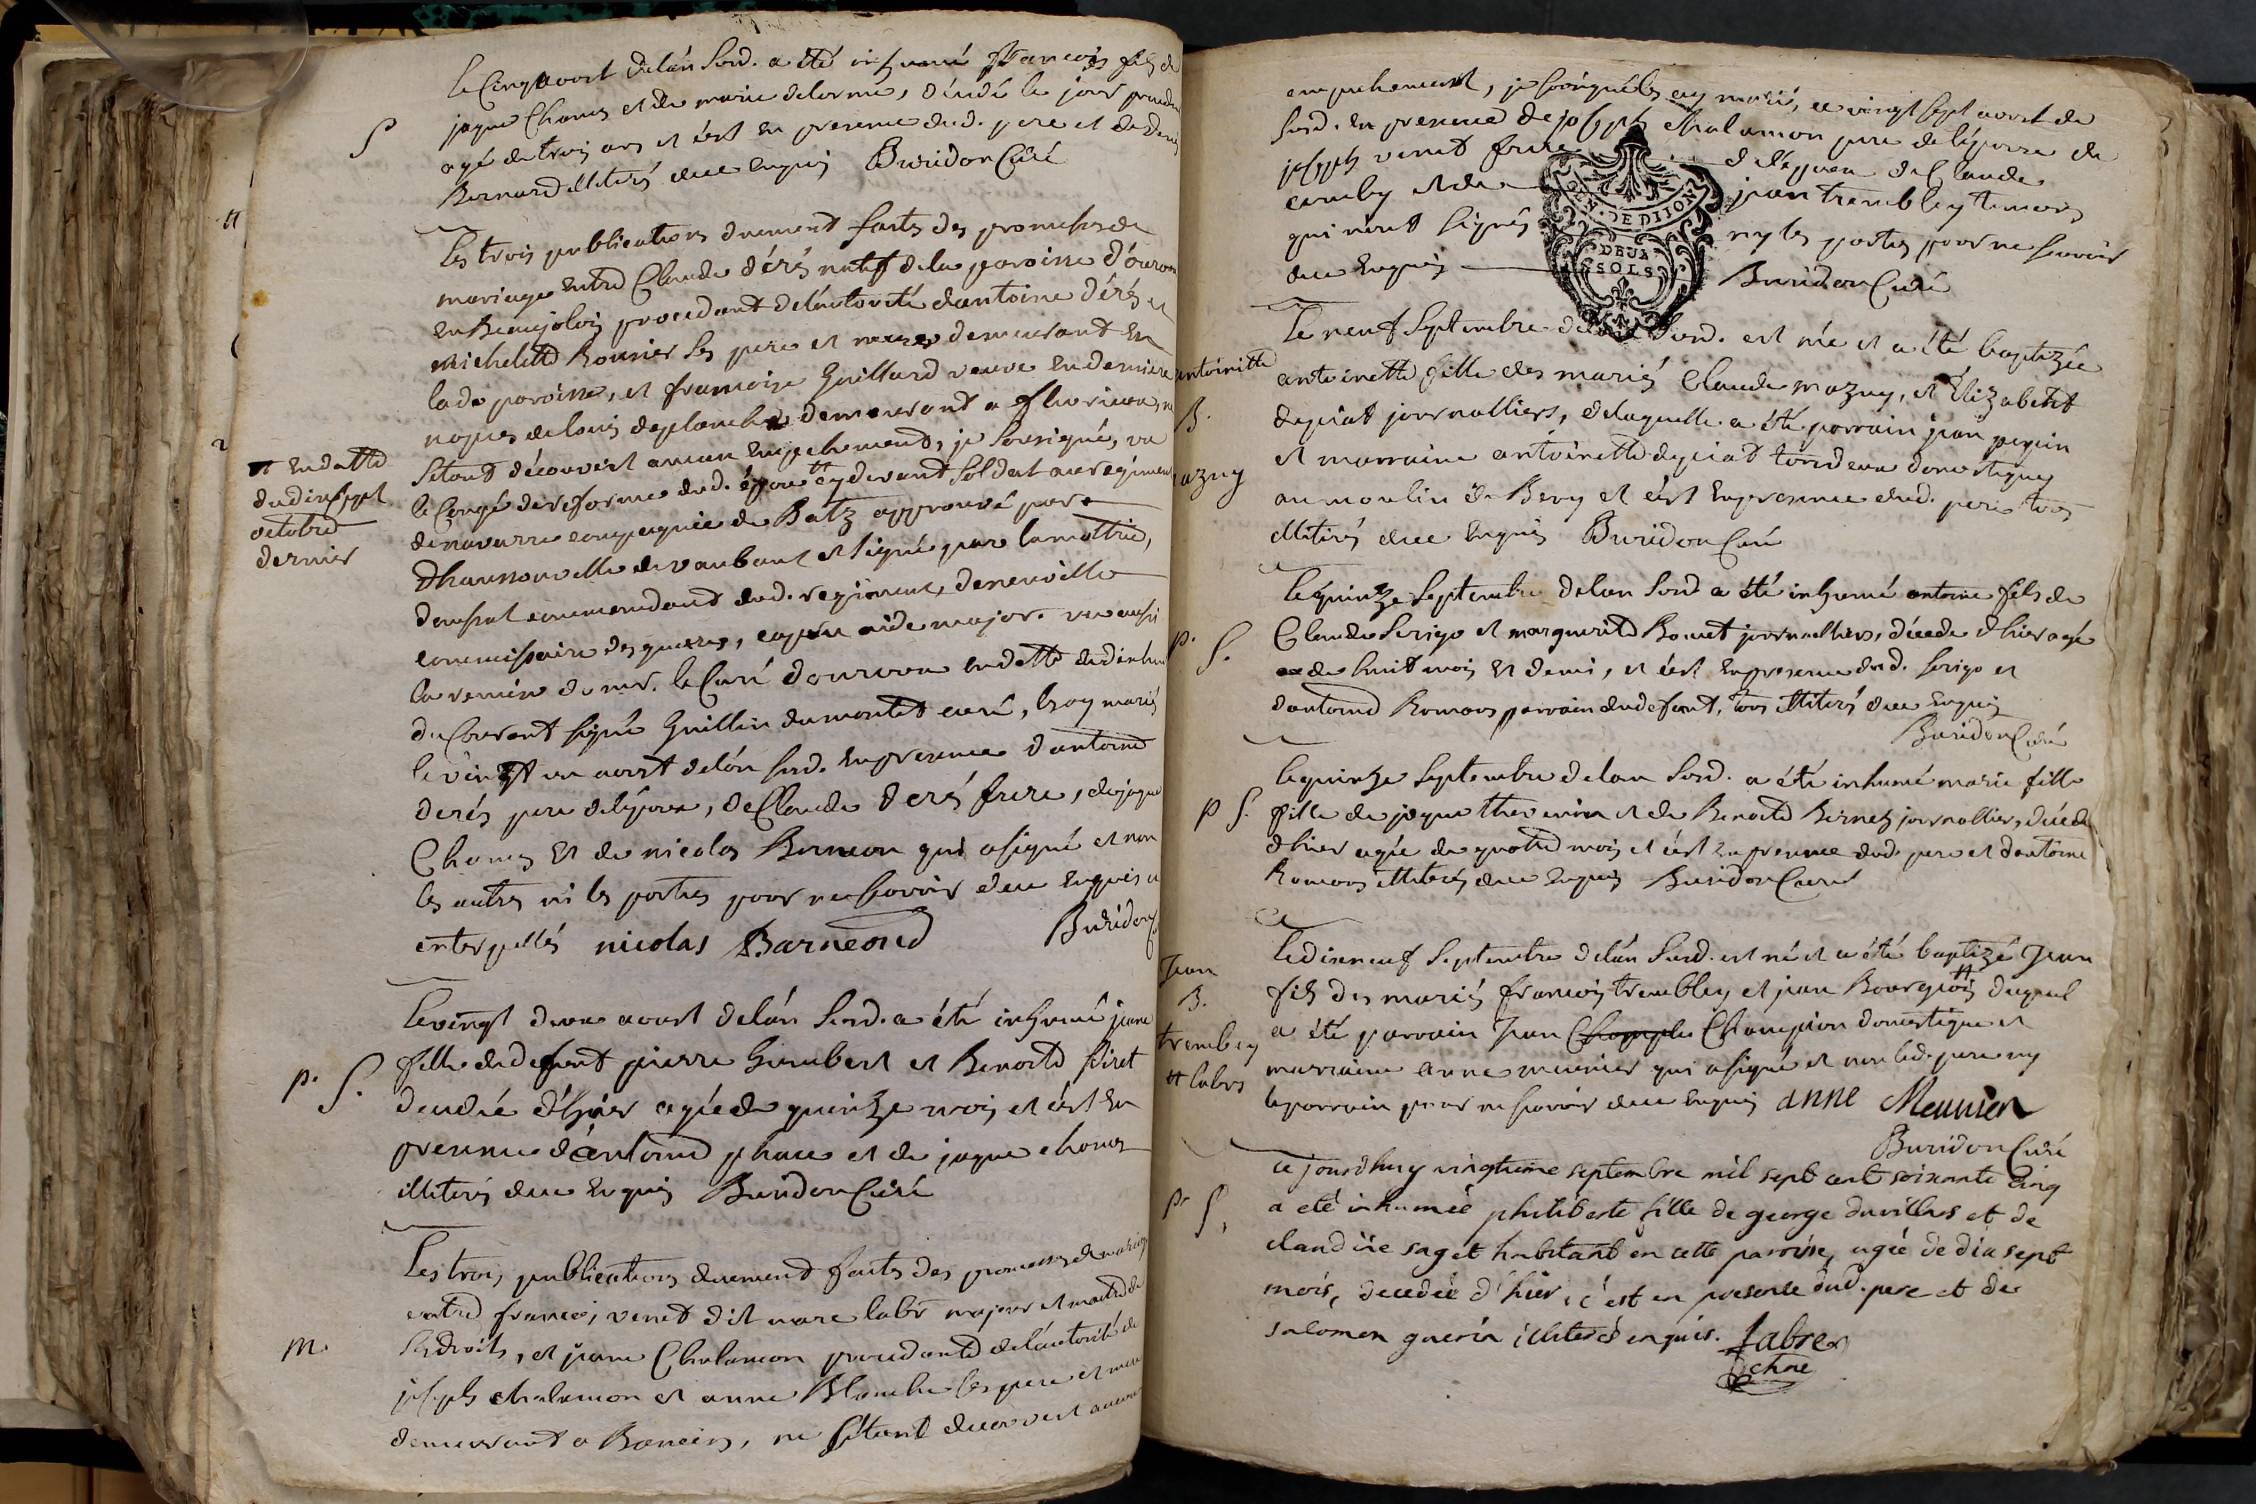 Le Cinq aoust de l'an susd. a été inhumé francois fils de
jaque Chanus et de marie delorme, décédé le jour
agé de trois ans et c'est en presence dud. pere et de denis
S
Bernard illiterés de ce enquis Buridon Curé
Les trois publications duement faites des promesses de
mariage entre Claude dérés natif de la paroisse d'ouroux
en Beaujolois procedant de l'autorité d'antoine dérés et
michelette Bonnier ses pere et mere demeurant en
lade paroisse, et francoise Guillard veuve en derniere
nopces de louis desplanches demeurant a
s'etant découvert aucun empechement, je soussigné, vu
le Congé de reforme dud. époux cy devant soldat au regiment
# en datte
du dix sept
octobre
dernier
de navarre compagnie de Batz approuvé par
d'haussonville de vaubant et signé par lamottrie,
commandant dud. regiment, deneuville
commissaire des guerres, aide major. vu aussi
la remise de mr. le Curé d'ouroux en datte du
du Courant signé Guillin dumontet curé, les ay mariés
le vingt un aoust de l'an susd. en presence d'antoine
derés pere de l'epoux, de Claude derés frere, de jaque
Chanus et de nicolas Barneon qui a signé et non
les autres ni les parties pour ne scavoir de ce enquis et
interpellés nicolas Barneoud Buridon
Le vingt deux aoust de l'an susd. a été inhumé jeane
p. S.
fille dudefunt pierre Humbert et Benoite Firet
decedée d'hier agée de quinze mois et c'est en
presence d'antoine et de jaque chanus
illiterés de ce enquis Buridon Curé
Les trois publications duement faites des promesses de mariage
entre francois venet dit marc labr majeur et maitre de
m.
ses droits, et jeane Chalamon procedante de l'autorité de
joseph chalamon et anne Blanche ses pere et mere
demeurant a Baneins, ne s'etant decouvert aucun
empechement, je soussigné les ay mariés, ce vingt sept aoust de
susd. en presence de joseph chalamon pere de l'epouse de
joseph venet frere de l'epoux de Claude
et de jean trembley temoins
qui n'ont signés ny les parties pour ne scavoir
de ce enquis Buridon Curé
GEN. DE DIJON
DEUX
SOLS
Le neuf septembre de l'an susd. est née et a été baptizée
antoinette
B.
mazuy
antoinette fille des mariés Claude mazuy, et Elizabeth
deguiat journalliers, de laquelle a été parrain jean
et marraine antoinette deguiat tous deux domestiques
au moulin de Bevy et c'est en presence dud. pere tous
illiterés de ce enquis Buridon Curé
Le quinze septembre de l'an susd a été inhumé antoine fils de
p. S.
Claude Serigo et marguerite Bonnet journalliers, décédé d'hier agé
de huit mois et demi, et c'est en presence dud. serigo et
d'antoine Romans parrain dudefunt, tous illiterés de ce enquis
Buridon Curé
Le quinze septembre de l'an susd. a été inhumé marie fille
p S.
fille de jaque thevenin et de Benoite Bernet journalliers, décédée
d'hier agée de quatre mois et c'est en presence dud. pere et d'antoine
Romans illiterés de ce enquis Buridon Curé
Le dixneuf septembre de l'an susd. est né et a été baptizé Jean
Jean
B.
trembley
# labrs
fils des mariés francois trembley et jeane Bourgeois # duquel
a été parrain Jean Champion domestique et
marraine anne meunier qui a signé et non led. pere ny
le parrain pour ne scavoir de ce enquis anne Meunier
Buridon Curé
Ce jourdhuy vingtieme septembre mil sept cent soixante cinq
pr S.
a eté inhumée philiberte fille de george duvillars et de
claudine saget habitant en cette paroisse, agée de dix sept
mois, decedée d'hier, c'est en presence dud. pere et de
salomon guerin illiterés enquis. fabre